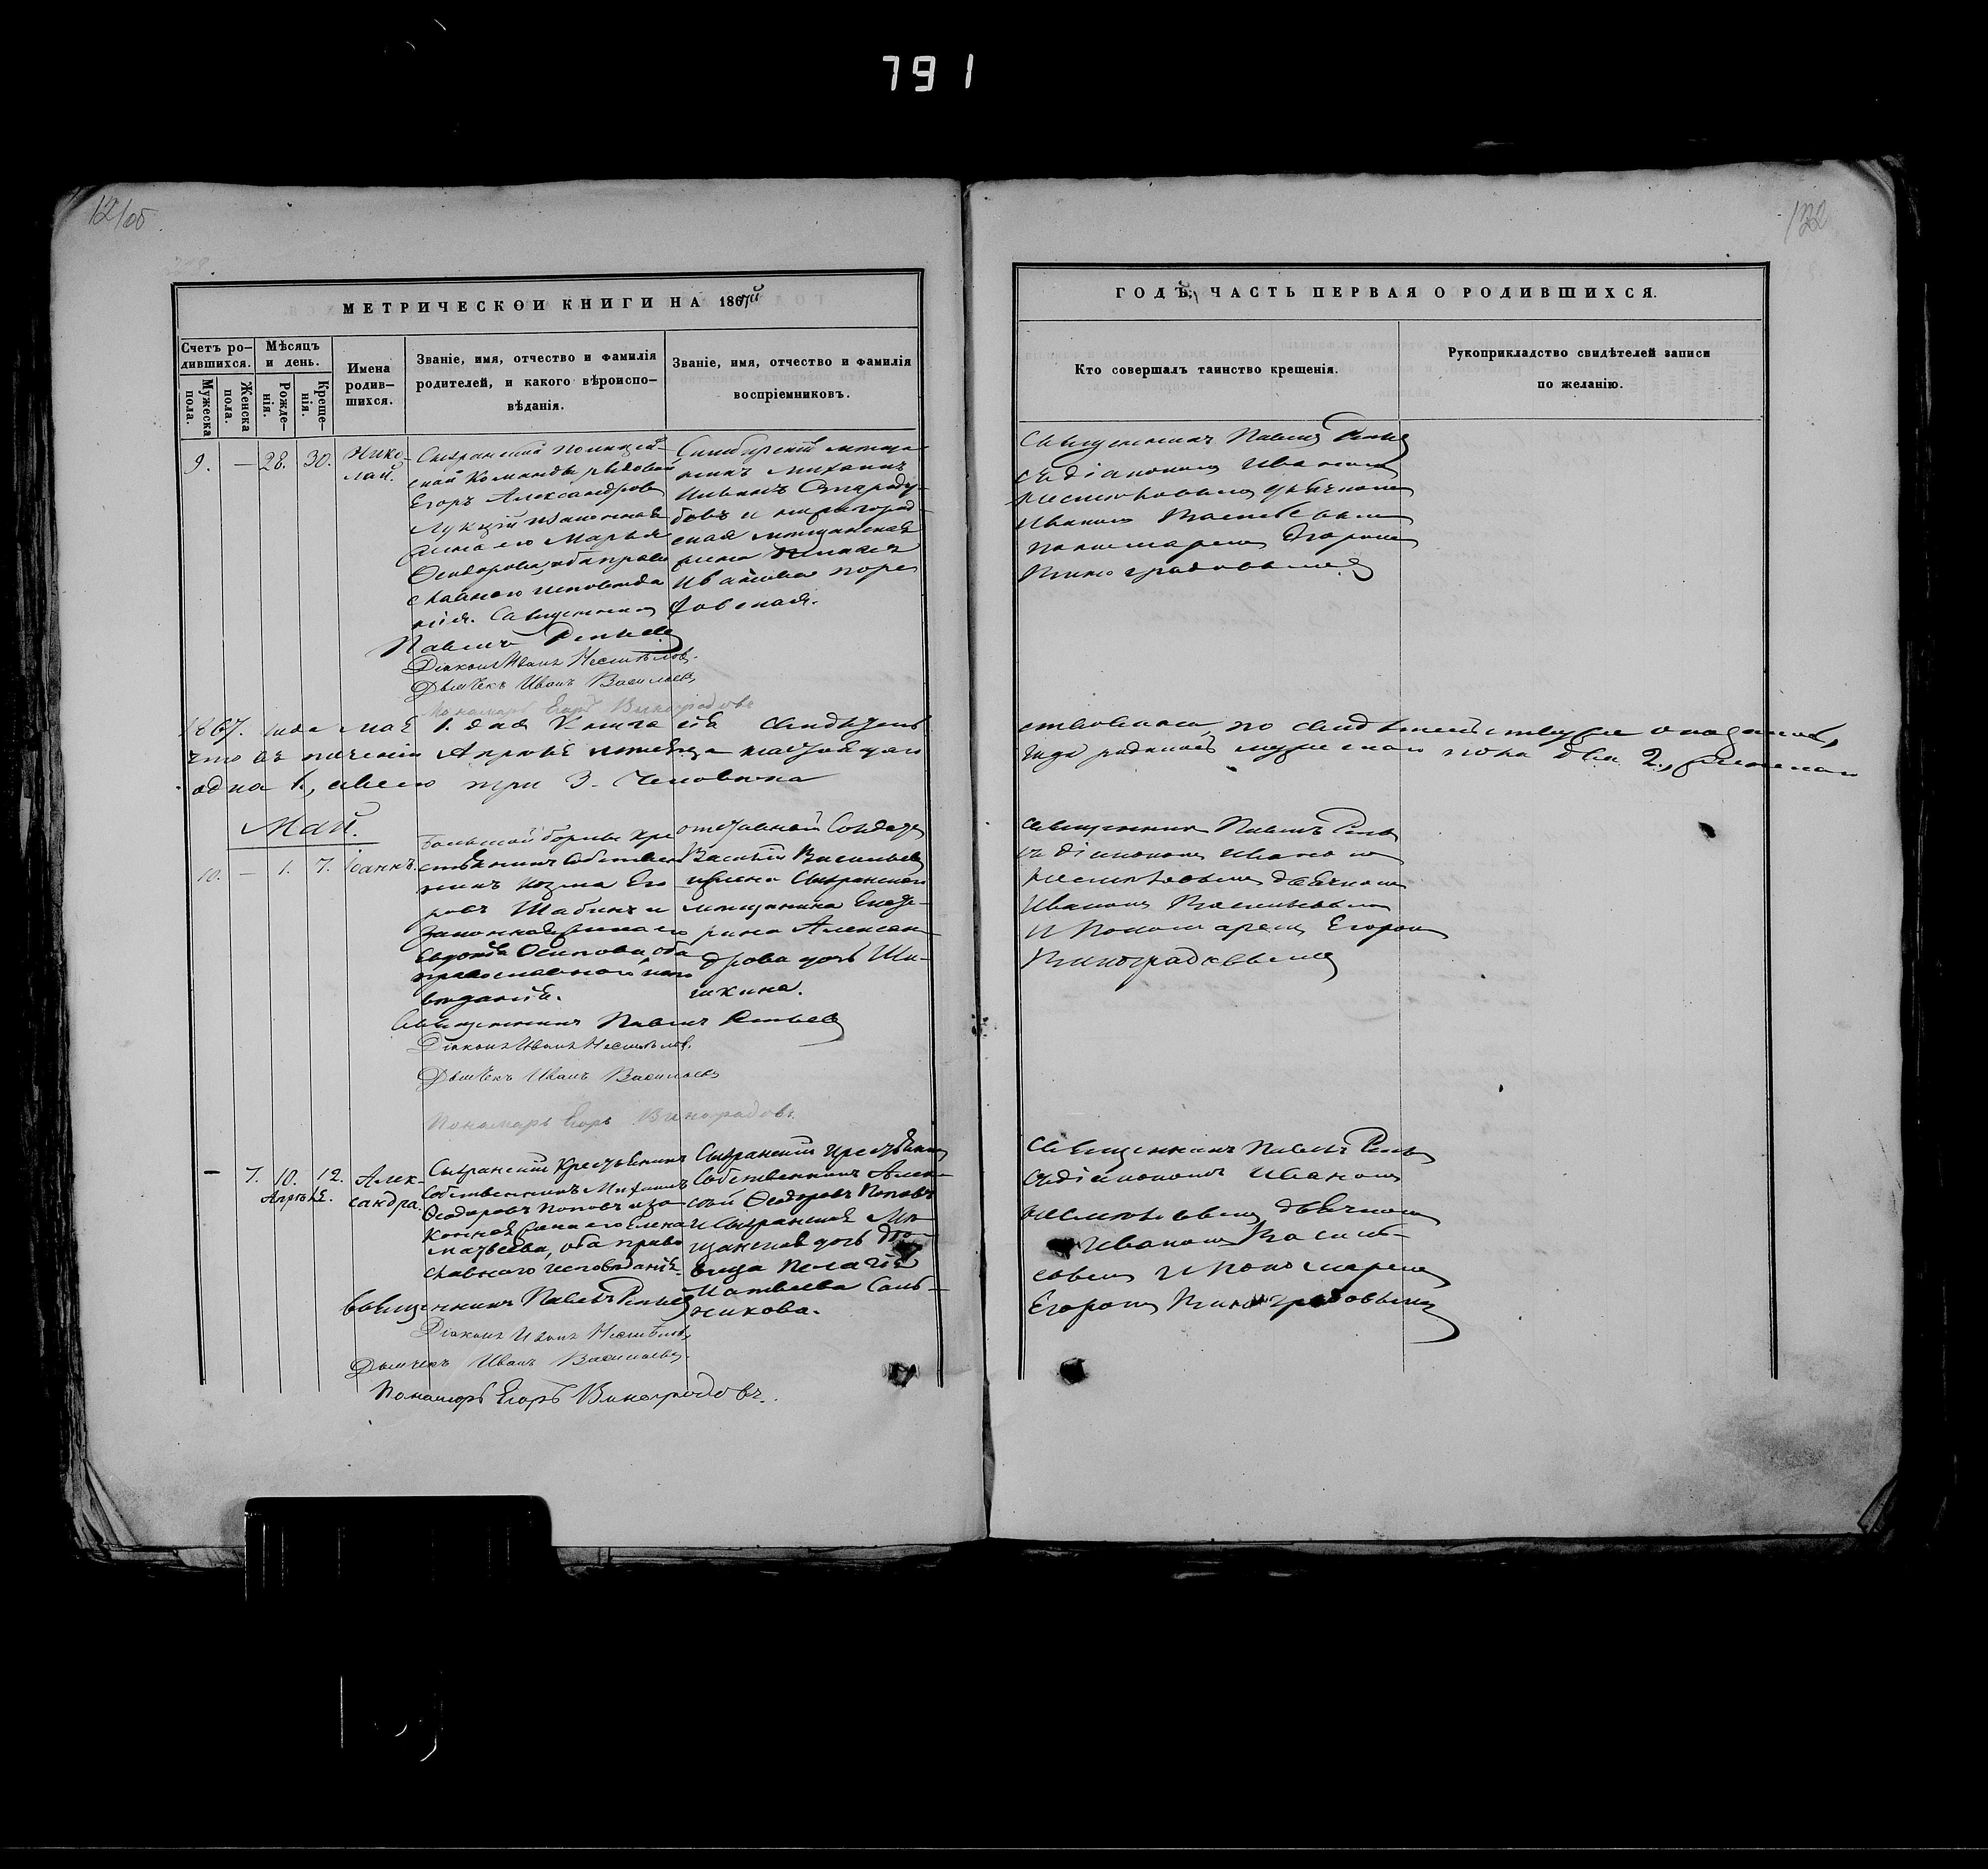 791
12/об.
132
МЕТРИЧЕСКОЙ КНИГИ НА 1867й
ГОДЪ, ЧАСТЬ ПЕРВАЯ О РОДИВШИХСЯ.
Счетъ ро-
дившихся.
Мѣсяцъ
и день.
Мужеска
пола.
Женска
пола.
Рожде-
нія.
Креще-
нія.
Имена
родив-
шихся.
Званіе, имя, отчество и фамилія
родителей, и какого вѣроиспо-
вѣданія.
Званіе, имя, отчество и фамилія
воспріемниковъ.
Кто совершалъ таинство крещенія.
Рукоприкладство свидѣтелей записи
по желанію.
9. — 28. 30.
Нико-
лай.
Сызранской полицей-
ской команды рядовой
Егоръ Александровъ
законная
жена его Марья
Ѳеодорова, оба право
славнаго исповѣда
нія. Священникъ
Павелъ
Діаконъ Иванъ Несмѣловъ.
Дьячекъ Иванъ Васильевъ
Пономарь Егоръ Виноградовъ
Симбирскій мѣща
нинъ Михаилъ
мѣщанская
жена
Ивановна
Священникъ Павелъ
съ діакономъ Иваномъ
Несмѣловымъ дьячкомъ
Иваномъ Васильевымъ
пономаремъ Егоромъ
Виноградовымъ
1867. года мая 1. дня Книга сія свидѣтель
ствована, по свидѣтельству оказалось,
что въ теченіи Апрѣля мѣсяца настоящаго
года родилось мужескаго пола два 2, женскаго
одна 1, всего три 3. человѣка
Май.
10. — 1. 7. Іоаннъ.
кре
стьянинъ собствен
никъ Козма Его
ровъ Шабинъ и
законная жена его
Евдокія Осипова, оба
православнаго испо
вѣданія.
Священникъ Павелъ
Діаконъ Иванъ Несмѣловъ.
Дьячекъ Иванъ Васильевъ
Пономарь Егоръ Виноградовъ.
отставный Солдатъ
Василій Васильевъ
Сызранскаго
мѣщанина Екате-
рина Алексан-
дрова дочь Ши-
шкина.
Священникъ Павелъ
съ діакономъ Иваномъ
Несмѣловымъ дьячкомъ
Иваномъ Васильевымъ
и Пономаремъ Егоромъ
Виноградовымъ
— 7. 10. 12.
Апрѣля.
Алек-
сандра.
Сызранскій Крестьянинъ
Собственникъ Михаилъ
Ѳеодоровъ Поповъ и за-
конная жена его Елена
Матвеева, оба право
славнаго исповѣданія.
Священникъ Павелъ
Діаконъ Иванъ Несмѣловъ
Дьячекъ Иванъ Васильевъ.
Пономарь Егоръ Виноградовъ.
Сызранскій Крестьянинъ
Собственникъ Алек-
сѣй Ѳеодоровъ Поповъ
и Сызранская Мѣ-
щанская дочь дѣ-
вица Пелагія
Матвеева Саль-
никова.
Священникъ Павелъ
съ діакономъ Иваномъ
Несмѣловымъ дьячкомъ
Иваномъ Василь-
евымъ и Пономаремъ
Егоромъ Виноградовымъ